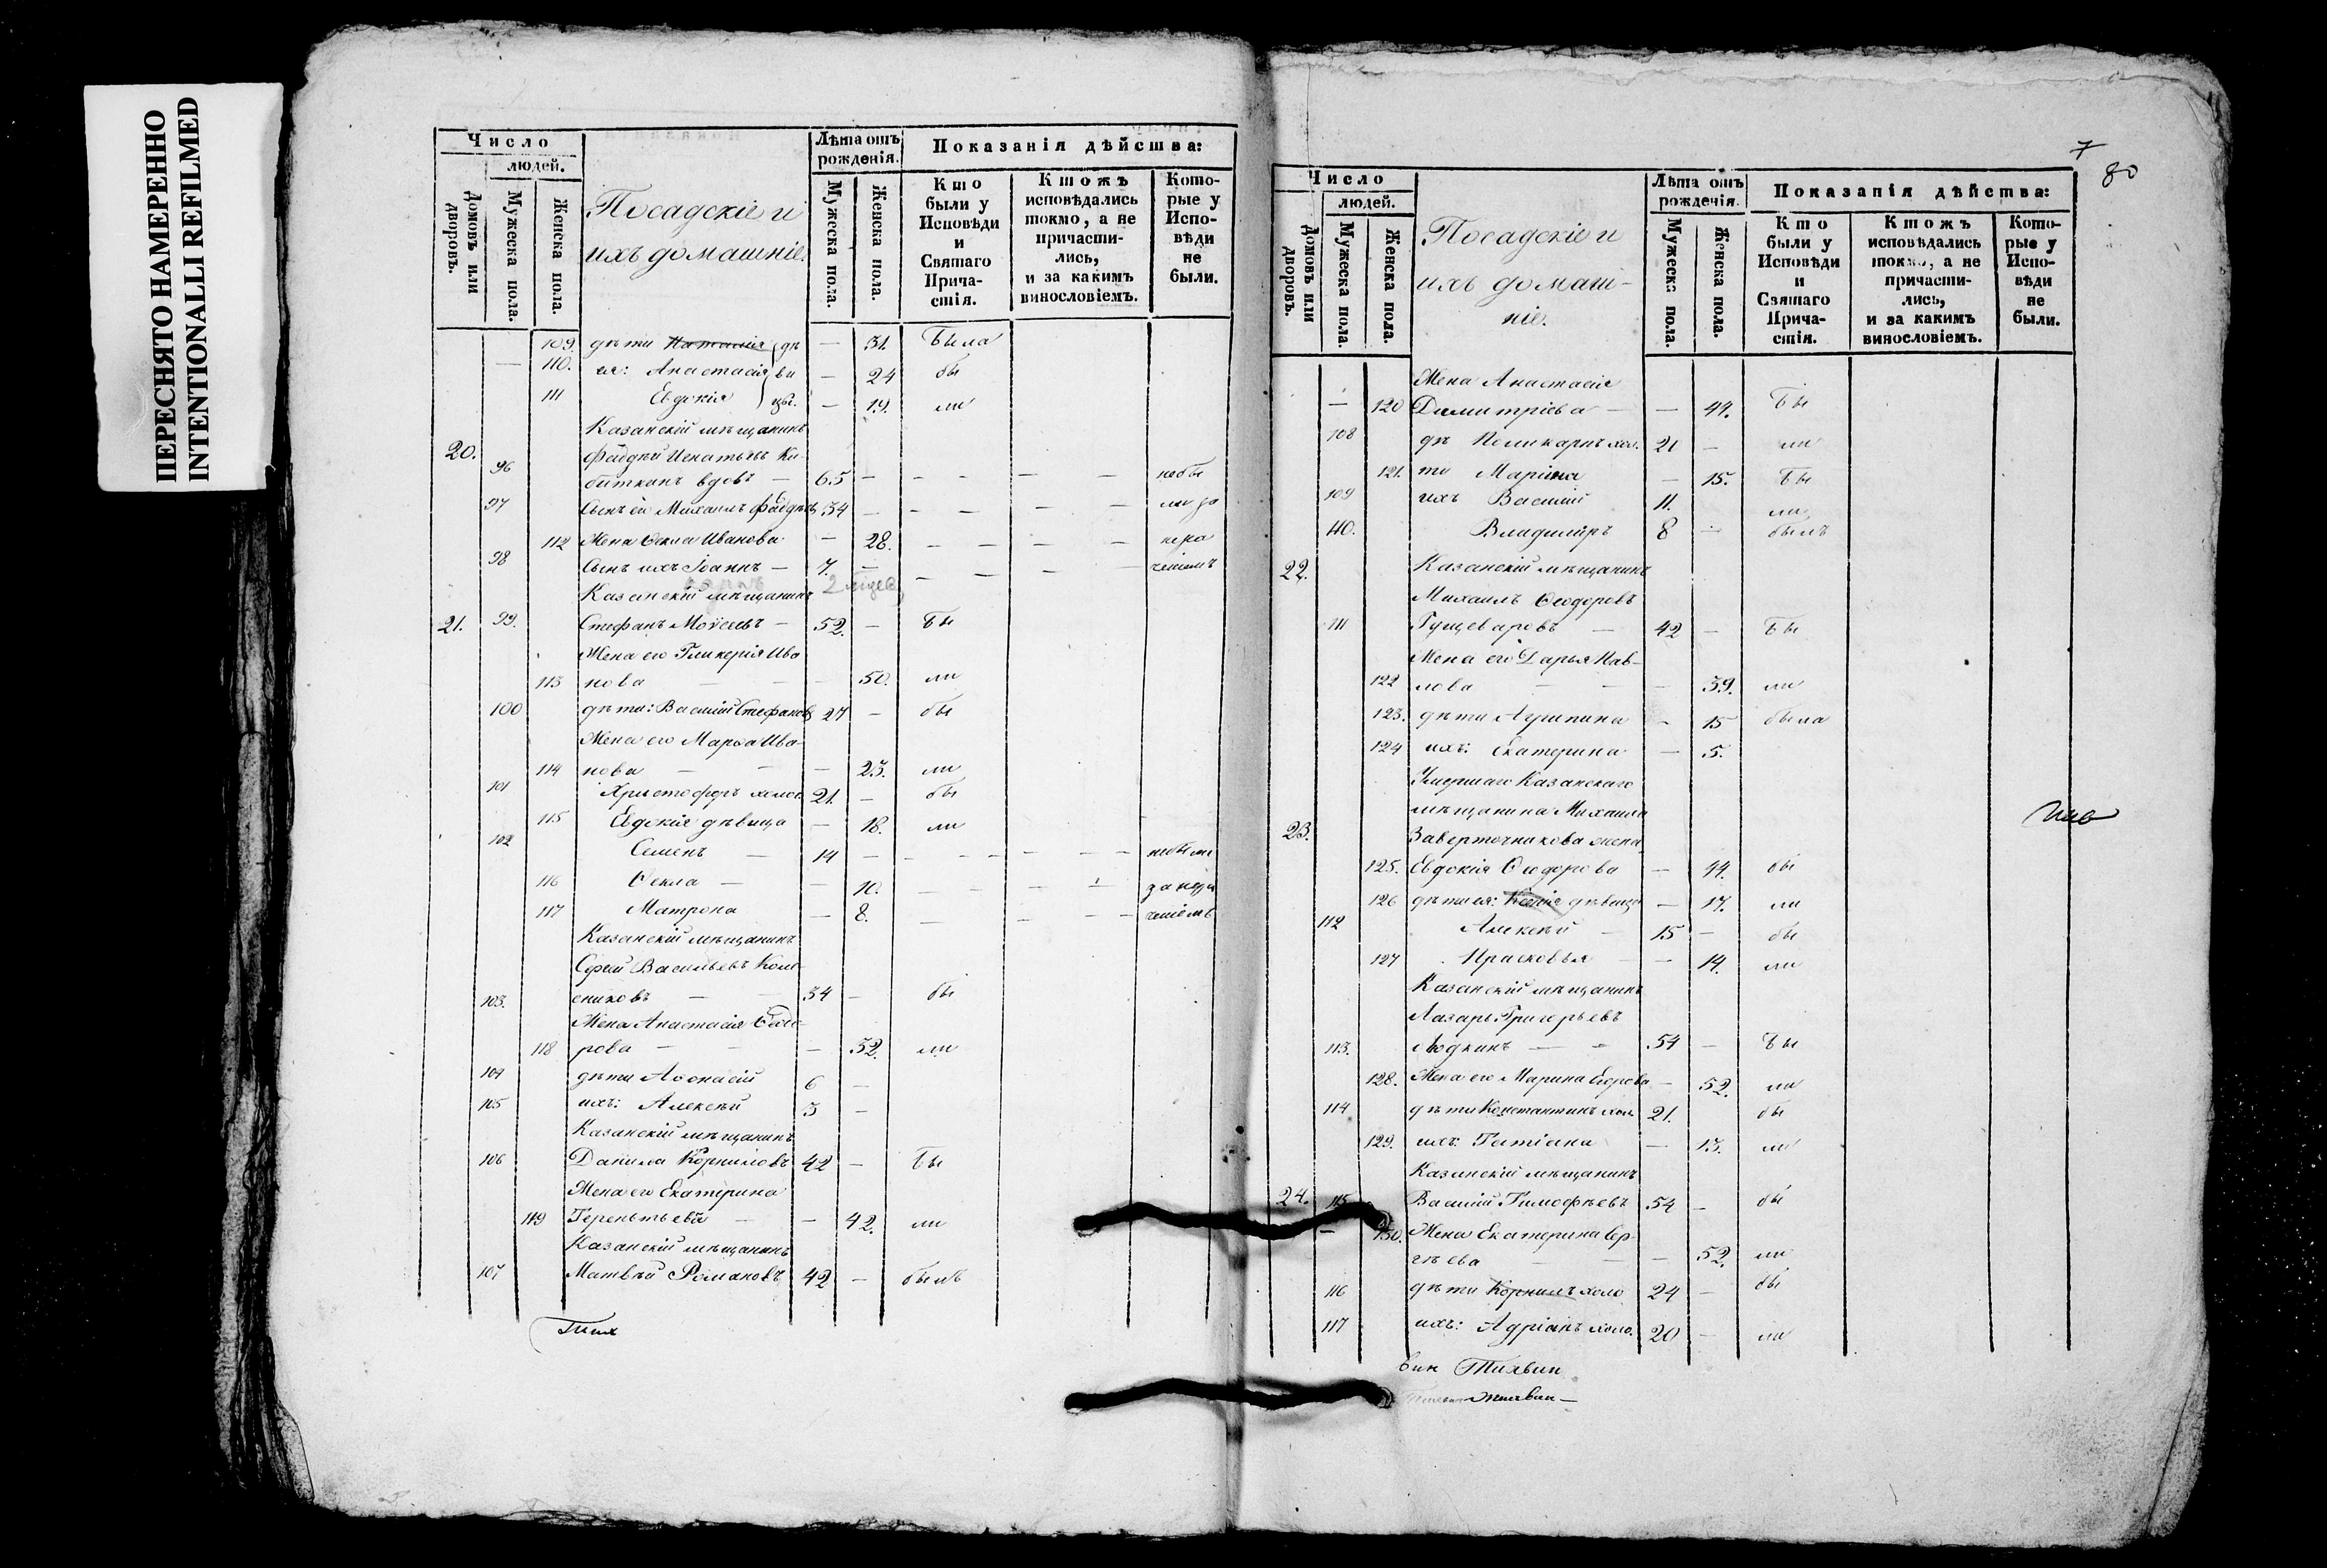 ПЕРЕСНЯТО НАМЕРЕННО
INTENTIONALLI REFILMED
Число
людей.
Домовъ или дворовъ.
Мужеска пола.
Женска пола.
Посадскіе и
ихъ домашніе.
Лѣта отъ
рожденія.
Мужеска пола.
Женска пола.
Показанія дѣйства:
Кто
были у
Исповѣди
и
Святаго
Прича-
стія.
Ктожъ
исповѣдались
токмо, а не
причасти-
лись,
и за какимъ
винословіемъ.
Кото-
рые у
Испо-
вѣди
не
были.
109. дѣти Наталія дѣ — 31. была
— 110. ея: Анастасія ви — 24 бы
111 Евдокія цы. — 19. ли
Казанскій мѣщанинъ
20. 96 Игнатьевъ
вдовъ — 65 — — — — — небы
97 Сынъ его Михаилъ 34 — — — — — ли за
112 Жена Ѳекла Иванова — 28. — — — — нера
98 Сынъ ихъ Іоаннъ — 7. — — — — — ченіемъ
Казанскій мѣщанинъ
21. 99. Стефанъ Моѵсеевъ — 52. — бы
Жена его Гликерія Ива
113 нова — — — 50. ли
100 дѣти: Василій Стефановъ 27 — бы
Жена его Марѳа Ива-
114 нова — — — 23. ли
101 Христофоръ холос 21. — бы
115 Евдокія дѣвица — 18. ли
102 Семенъ — 14 — — — — — — — небыли
116 Ѳекла — — 10. — — — — за нера
117 Матрона — 8. — — — — ченіемъ
Казанскій мѣщанинъ
Сергѣй Васильевъ Коле-
103. сниковъ — — 34 — бы
Жена Анастасія Ѳедо-
118 рова — — — 32. ли
104 дѣти Аѳонасій 6 —
105 ихъ: Алексѣй 3 —
Казанскій мѣщанинъ
106 Данила Корниловъ 42 — бы
Жена его Екатерина
119 Терентьева — — 42. ли
Казанскій мѣщанинъ
107 Матвѣй Романовъ 42 — былъ
Тих
7
80
Число
людей.
Домовъ или дворовъ.
Мужеска пола.
Женска пола.
Посадскіе и
ихъ домаш-
ніе.
Лѣта отъ
рожденія.
Мужеска пола.
Женска пола.
Показанія дѣйства:
Кто
были у
Исповѣди
и
Святаго
Прича-
стія.
Ктожъ
исповѣдались
токмо, а не
причасти-
лись,
и за какимъ
винословіемъ.
Кото-
рые у
Испо-
вѣди
не
были.
Жена Анастасія
— 120 Димитріева — — 44. бы
108 дѣ Поликарпъ хол. 21 — ли
121. ти Марина — 15. бы
109 ихъ Василій 11. ли
110. Владиміръ 8 — былъ
22. Казанскій мѣщанинъ
Михаилъ Ѳеодоровъ
111 42 — бы
Жена его Дарья Пав-
122 лова — — — 39. ли
123. дѣти Агрипина — 15 была
124 ихъ: Екатерина — 5.
Умершаго Казанскаго
мѣщанина Михаила
23. Заверточникова жена
125. Евдокія Ѳеодорова — 44. бы
126 дѣти ея: Ксенія дѣвица — 17. ли
112 Алексѣй — 15 — бы
127 Прасковья — — 14. ли
Казанскій мѣщанинъ
Лазарь Григорьевъ
113. Людкинъ — — 54 — бы
128. Жена его Марина Егорова — 52. ли
114 дѣти Константинъ хол. 21. бы
129. ихъ: Татіана — 13. ли
Казанскій мѣщанинъ
24. 115 Василій Тимофѣевъ 54 — бы
— 130. Жена Екатерина Сер-
гѣева — — — 52. ли
116 дѣти Корнилъ холо 24 — бы
117 ихъ: Адріанъ холо. 20 — ли
вин Тихвин